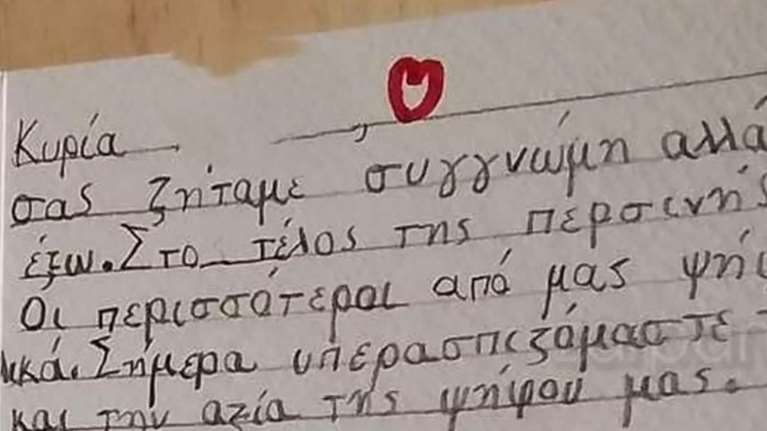 Κυρία ,
σας ζήταμε συγγνώμη αλλά
έξω. Στο τέλος της περσινής
Οι περισσότεροι από μας ψήφ
ικά. Σήμερα υπερασπιζόμαστε τ
και την αξία της ψήφου μας.